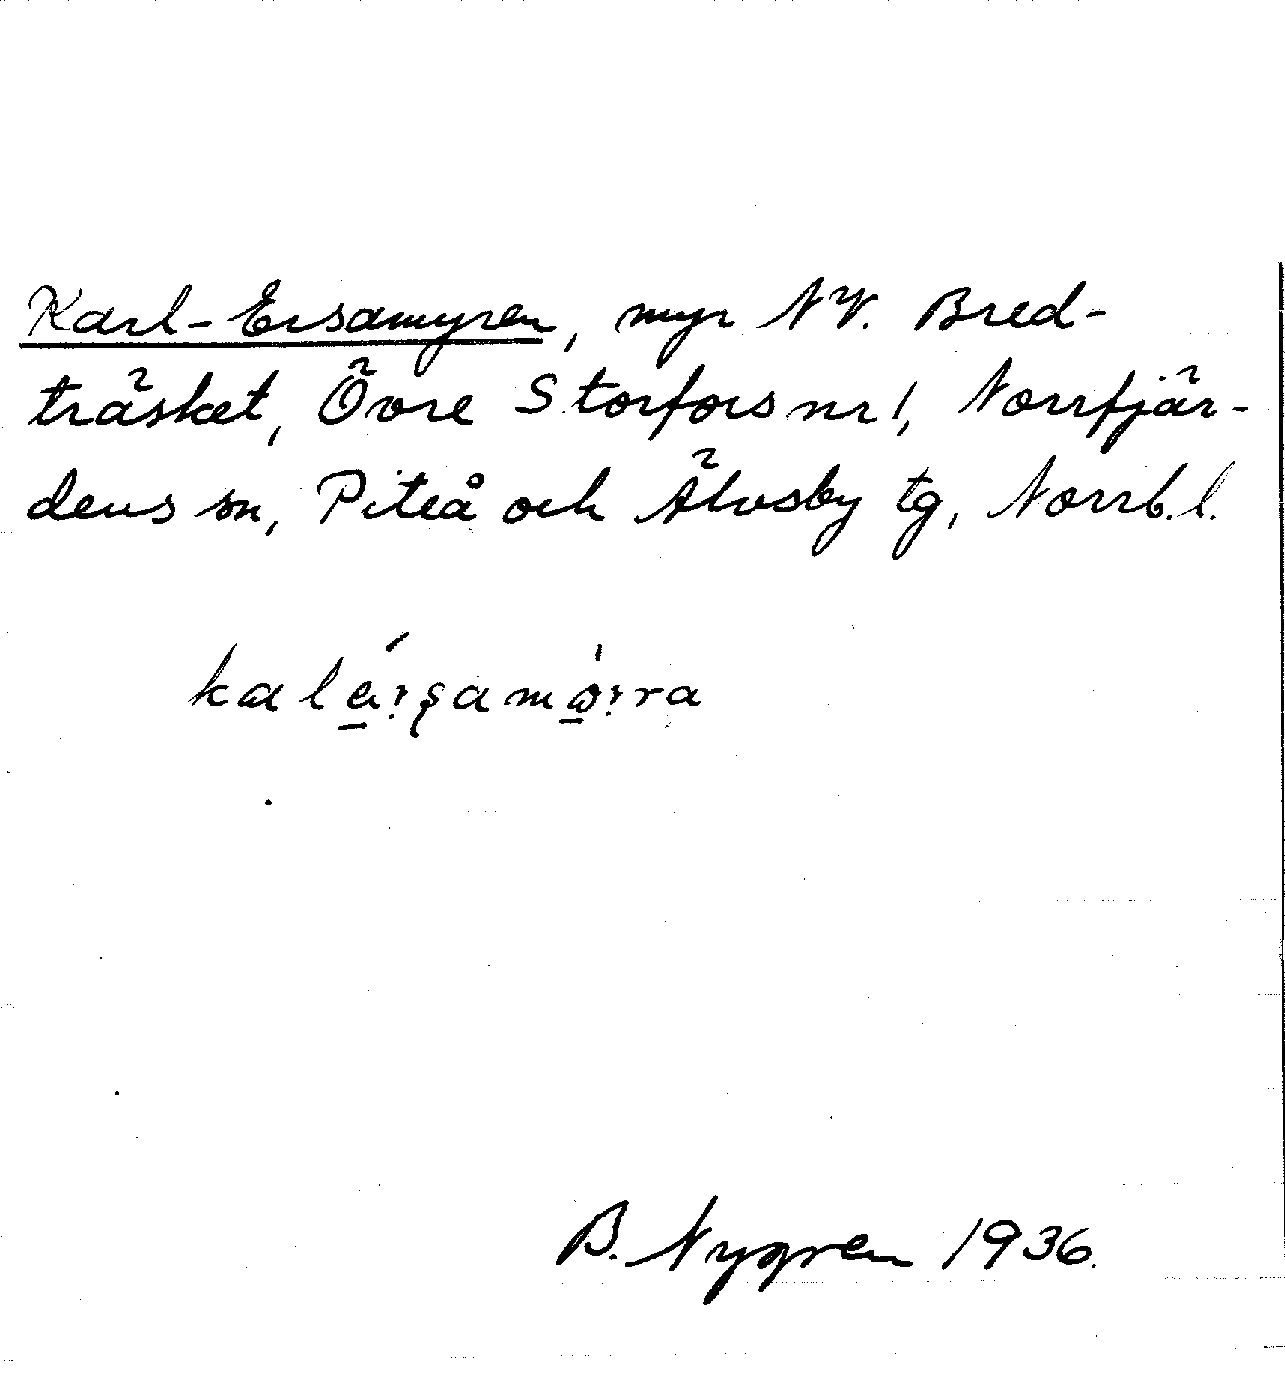 Karl-Ersamyren, myr NV. Bred-
träsket, Övre Storfors nr 1, Norrfjär-
dens sn, Piteå och Älvsby tg, Norrb. l.
B. Nygren 1936.